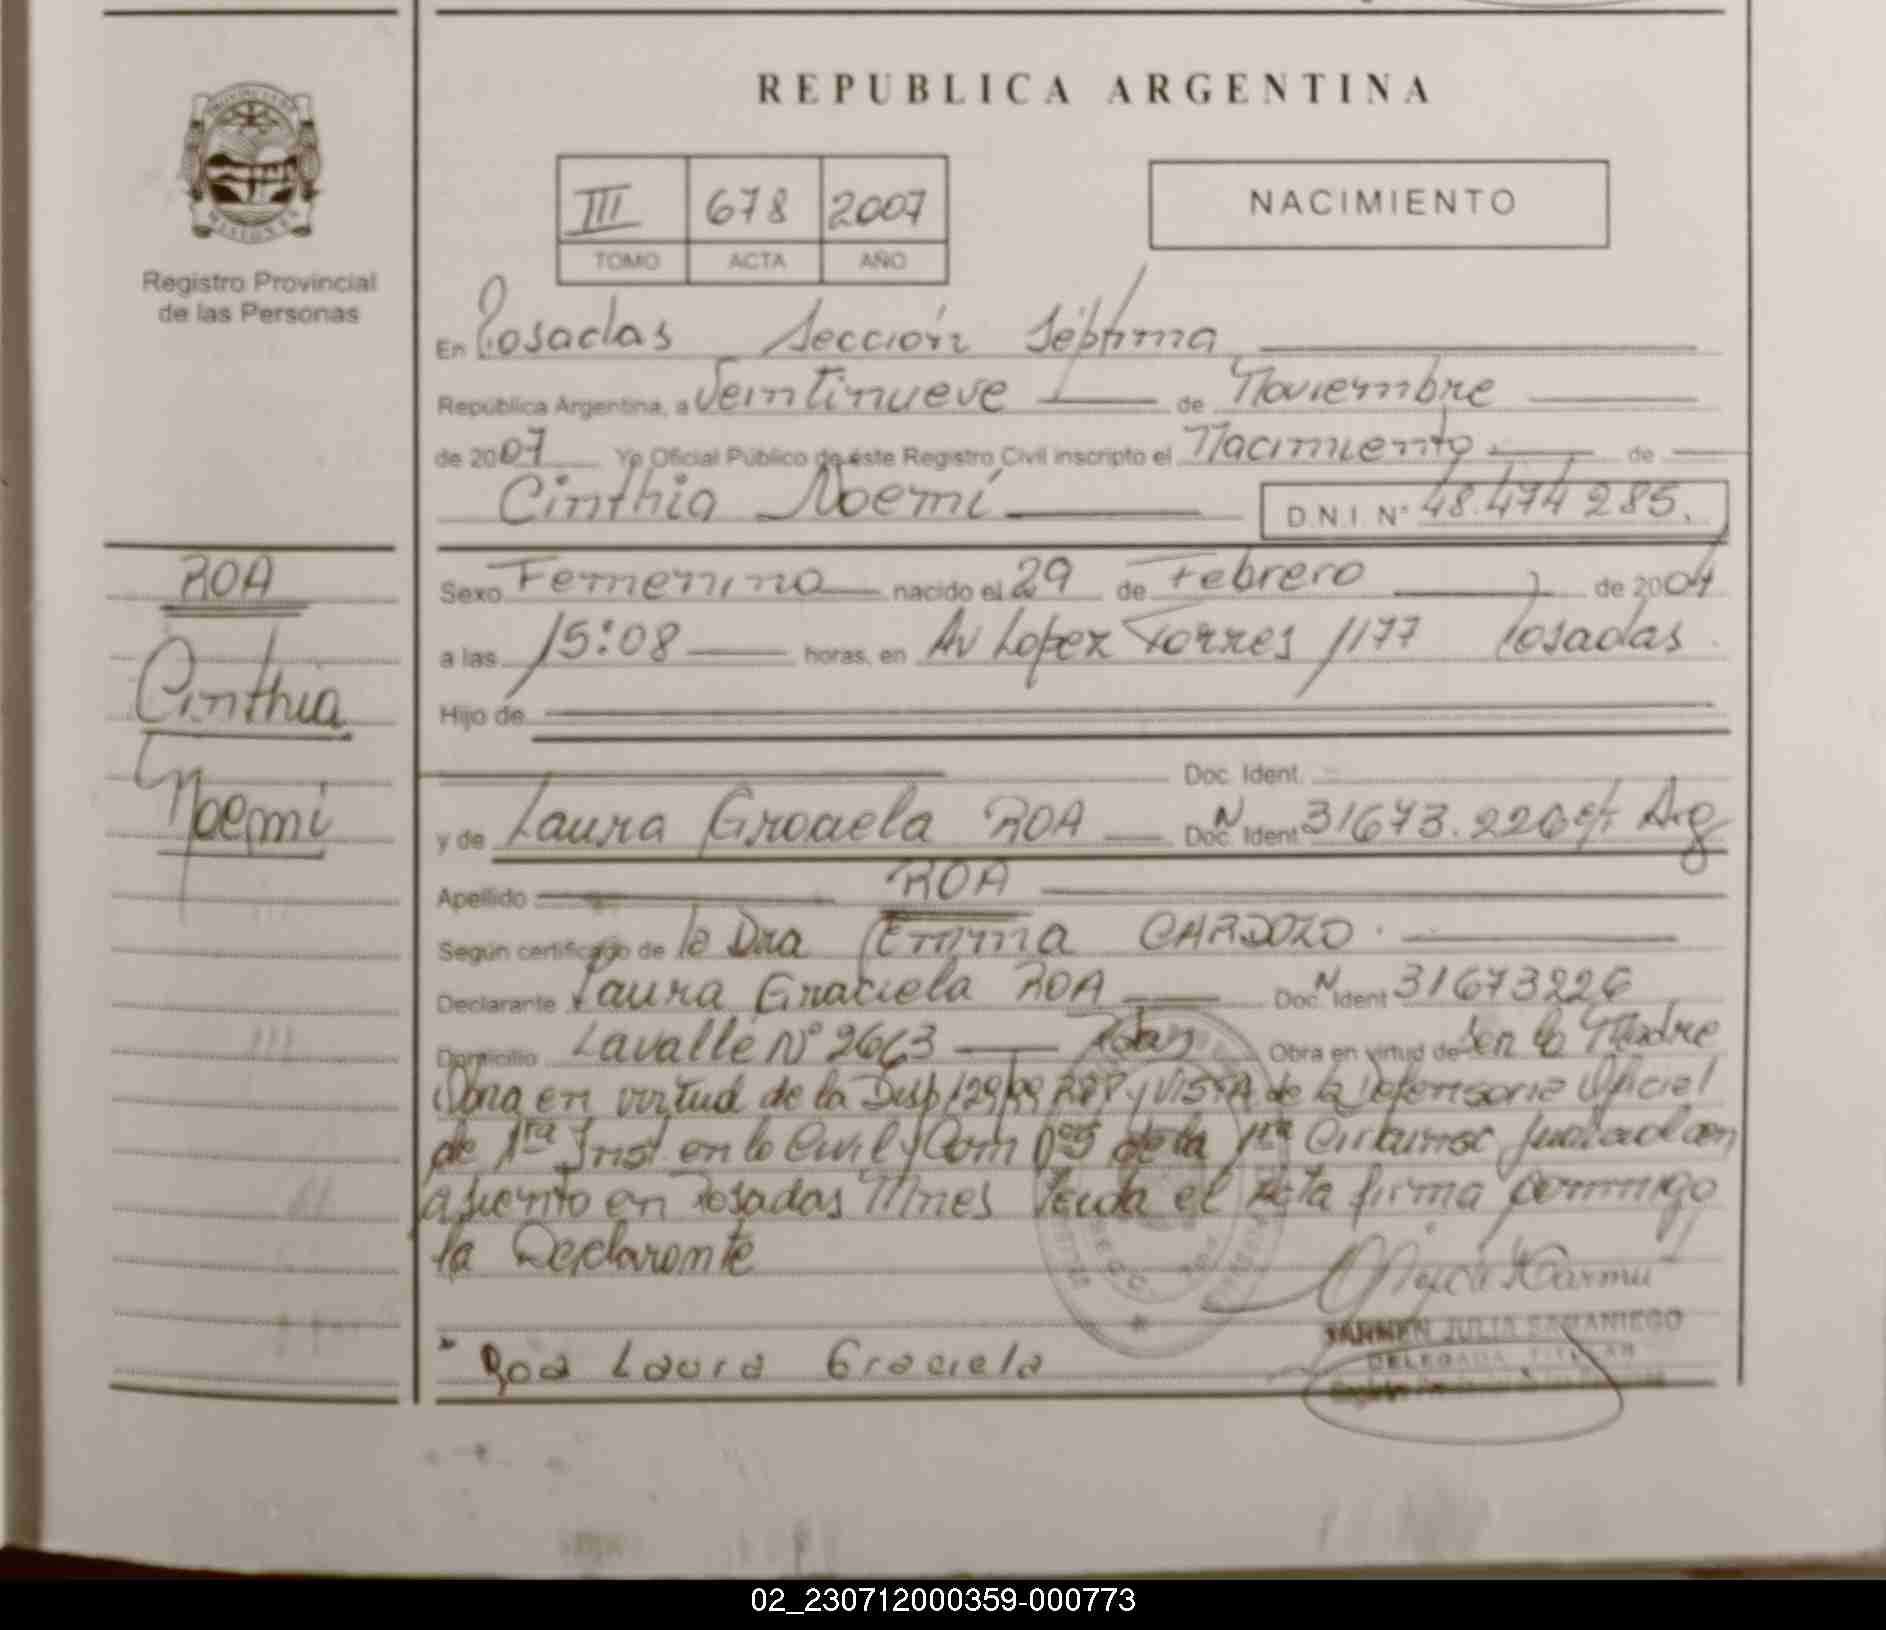 REPUBLICA ARGENTINA
PROVINCIA DE
MISIONES
Registro Provincial
de las Personas
III 678 2007
TOMO ACTA AÑO
NACIMIENTO
En Posadas Sección Séptima
República Argentina, a Veintinueve de Noviembre
de 2007 Yo Oficial Público de éste Registro Civil inscripto el Nacimiento de
Cinthia Noemí D.N.I. N° 48.474 285.
ROA
Cinthia
Noemi
Sexo Femenino nacido el 29 de Febrero de 2004
a las 15:08 horas, en Av Lopez Torres 1177 Posadas
Hijo de
Doc. Ident.
y de Laura Graciela ROA DNI Doc. Ident 31673.226 Arg
Apellido ROA
Según certificado de la Dra Emma CARDOZO.
Declarante Laura Graciela ROA Doc. Ident 31673226
Domicilio Lavalle N° 2663 Obra en virtud de ser la Madre
Obra en virtud de la Disp 129/99 RPP y VISTA de la Defensoria Oficial
de 1ra Inst en lo Civil y Com de la 1ra Judicial con
asiento en Posadas Mnes Leida el Acta firma conmigo
la Declarante
Roa Laura Graciela
CARMEN JULIA SAMANIEGO
DELEGADA TITULAR
Registro Provincial de las Personas
02_230712000359-000773